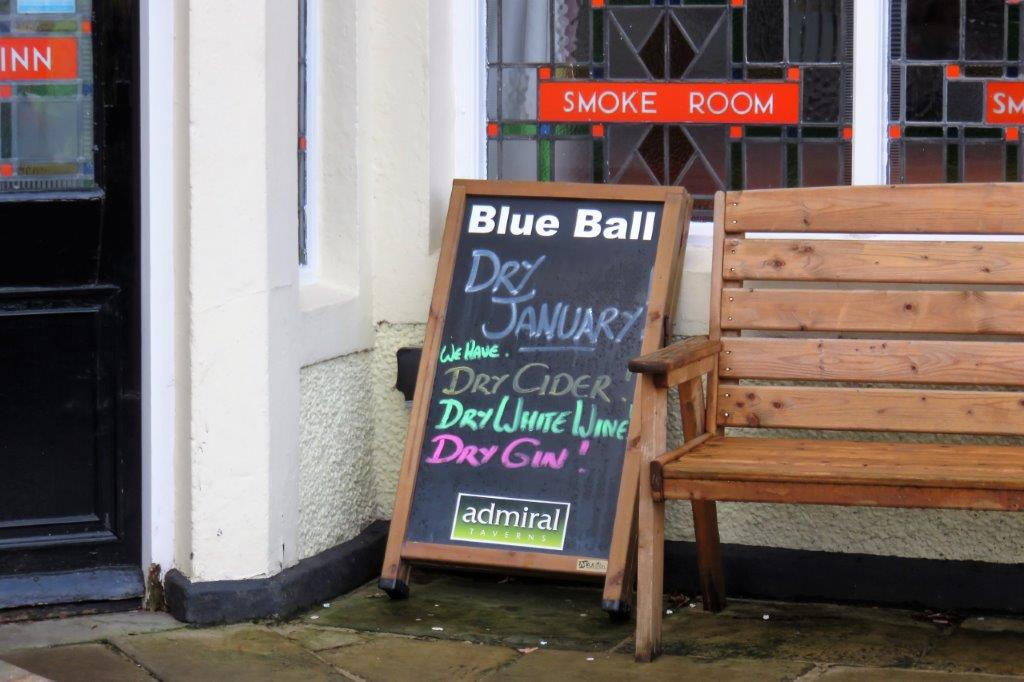 INN
SMOKE ROOM
SM
Blue Ball
DRY
JANUARY
WE HAVE.
DRY CIDER!
DRY WHITE WINE!
DRY GIN!
admiral
TAVERNS